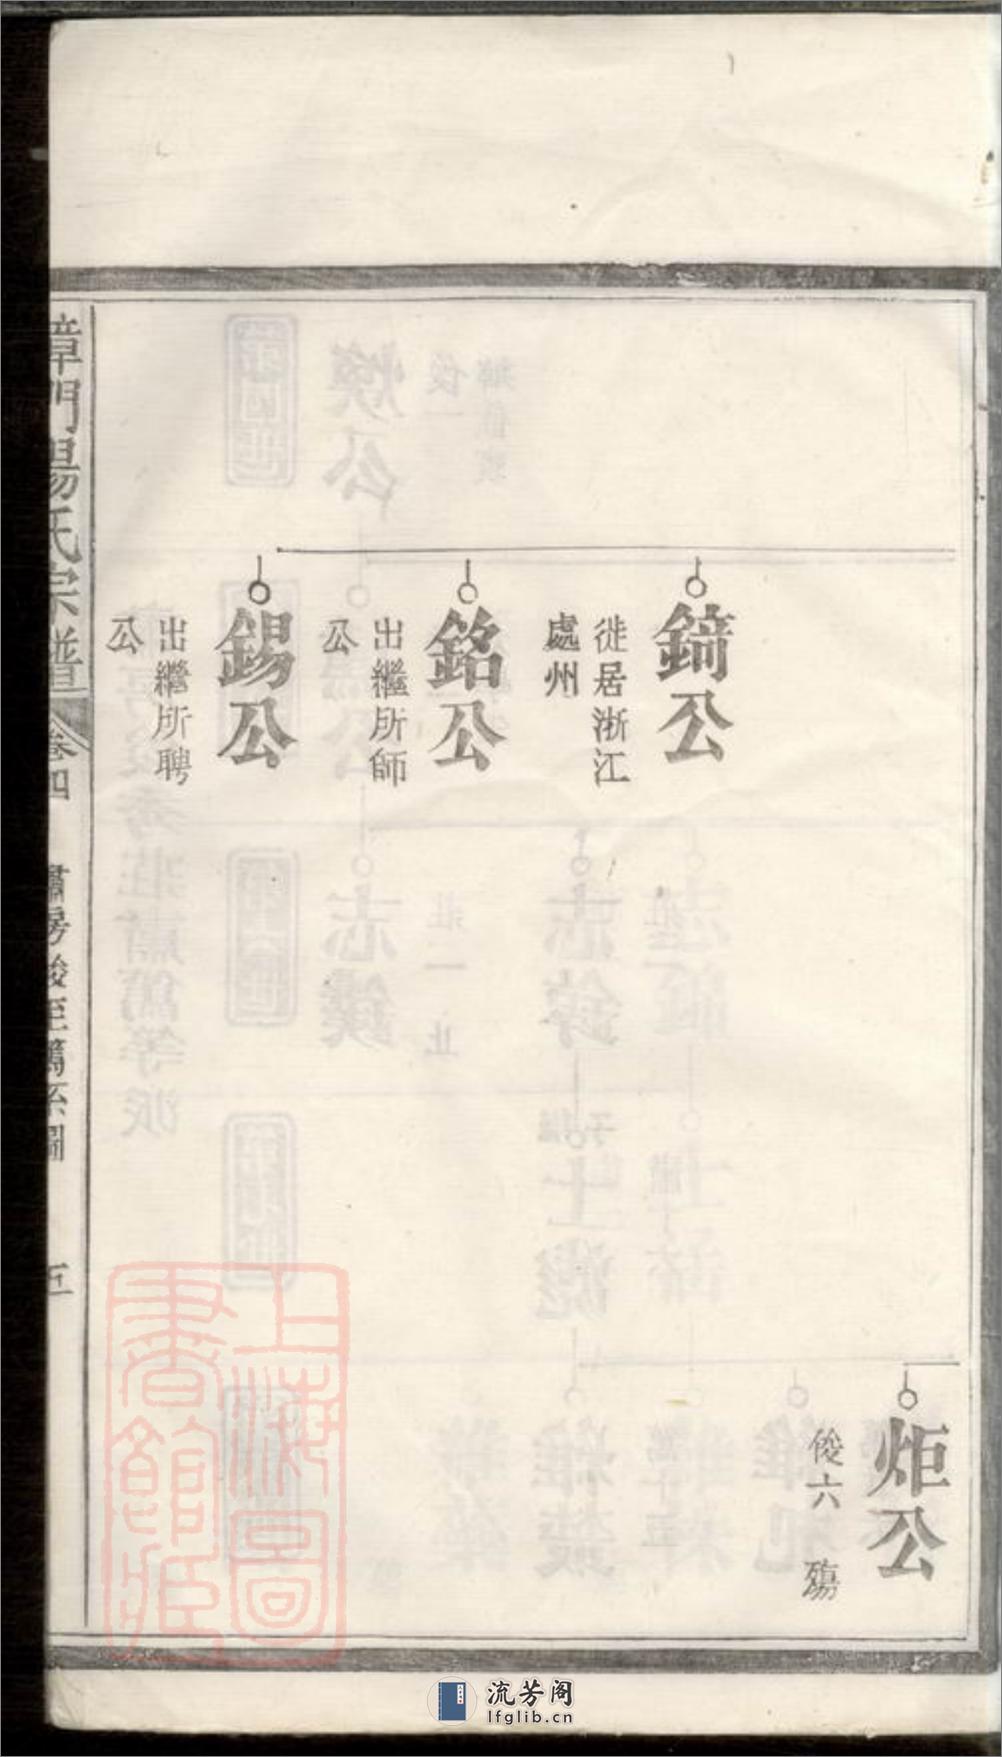 錡公
徙居浙江
處州
銘公
出繼所師
公
錫公
出繼所聘
公
炬公
俊六 殤
章門楊氏宗譜
卷四
肅房俊至萬系圖
五
上海圖
書館藏
流芳阁
lfglib.cn